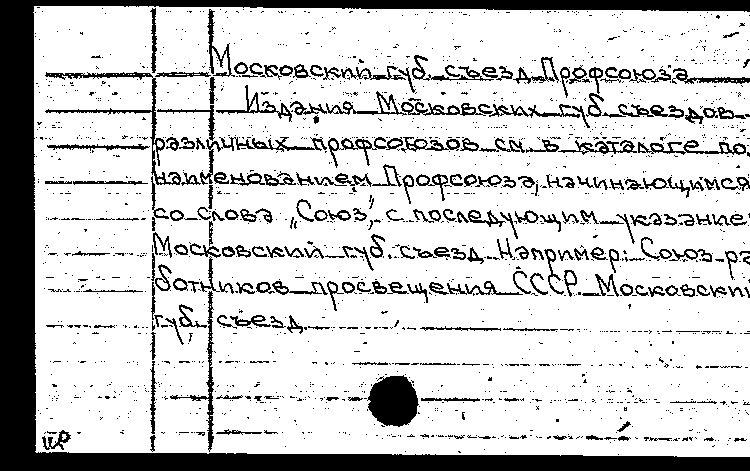 Московский губ. съезд Профсоюза
Издания Московских губ. съездов
различных профсоюзов см. в каталоге по
наименованием Профсоюза, начинающимся
со слова „Союз“, с последующим указание
Московский губ. съезд. Например: Союз ра
ботников просвещения СССР. Московски
губ. съезд